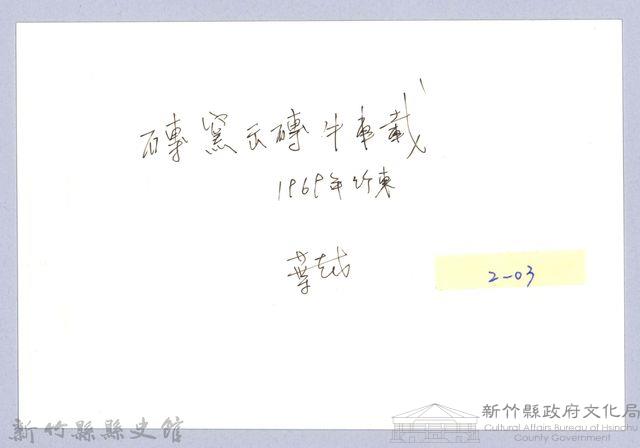 磚窯瓦磚牛車載
1969年竹東
葉越
2-03
新竹縣縣史館
新竹縣政府文化局
Cultural Affairs Bureau of Hsinchu
County Government